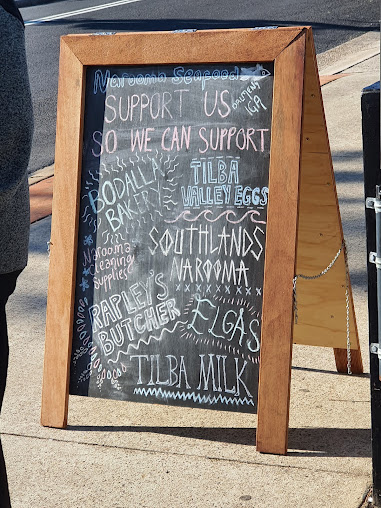 Narooma Seafood
SUPPORT US
SO WE CAN SUPPORT
BODALLA
BAKERY
TILBA
VALLEY EGGS
Narooma
Cleaning
Supplies
SOUTHLANDS
NAROOMA
RAPLEY'S
BUTCHER
ELGAS
TILBA MILK